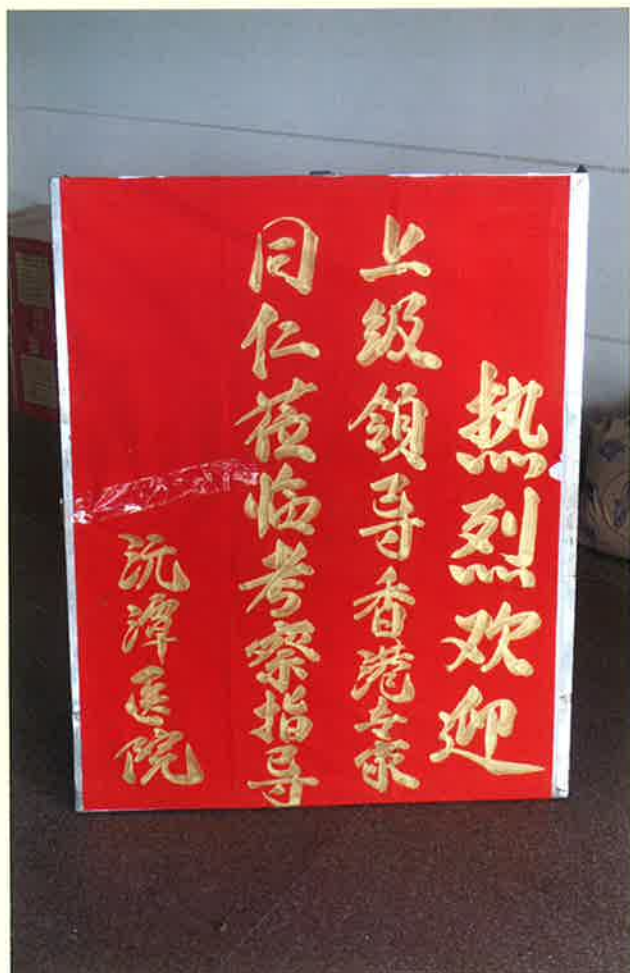 热烈欢迎
上级领导香港专家
同仁莅临考察指导
沅潭医院